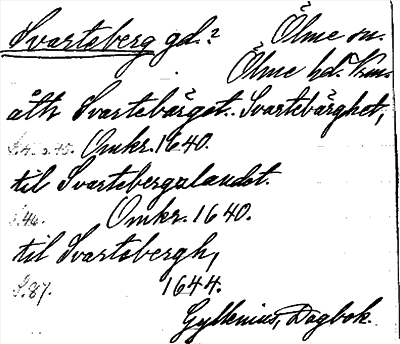 Svartsberg gd.? Ölme sn.
Ölme hd. Vrm.
åth Svartebärget. Svartebärghet,
S. 45. Omkr. 1640.
til Svartebergalandet.
S. 46. Omkr. 1640.
til Svartsbergh,
S. 87. 1644.
Gyllenius, Dagbok